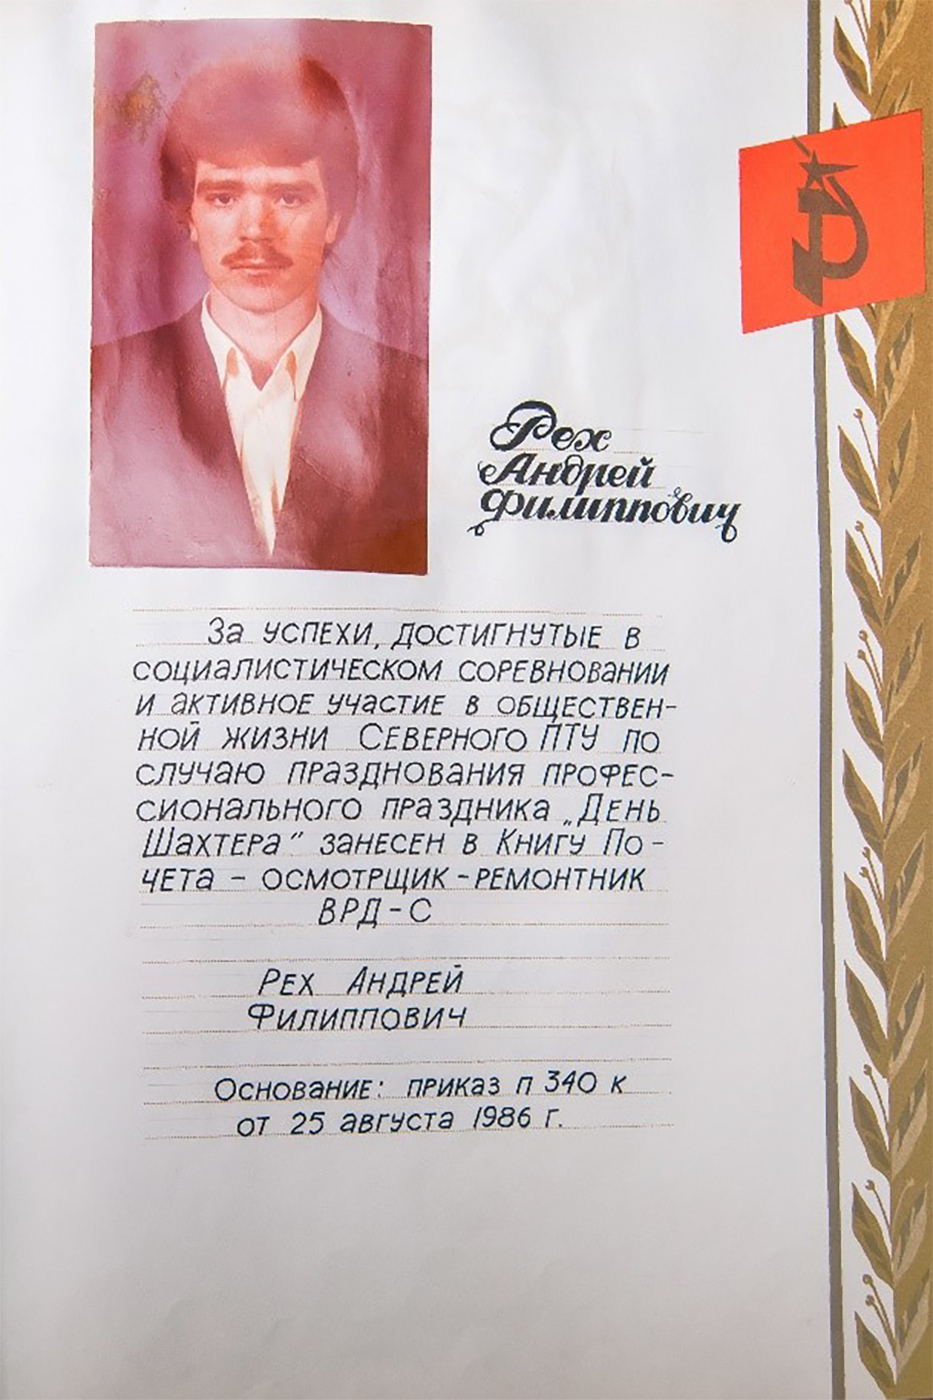 Рех
Андрей
Филиппович
За успехи, достигнутые в
социалистическом соревновании
и активное участие в обществен-
ной жизни Северного ПТУ по
случаю празднования профес-
сионального праздника „День
Шахтера" занесен в Книгу По-
чета - осмотрщик-ремонтник
ВРД-С
Рех Андрей
Филиппович
Основание: приказ п 340 к
от 25 августа 1986 г.